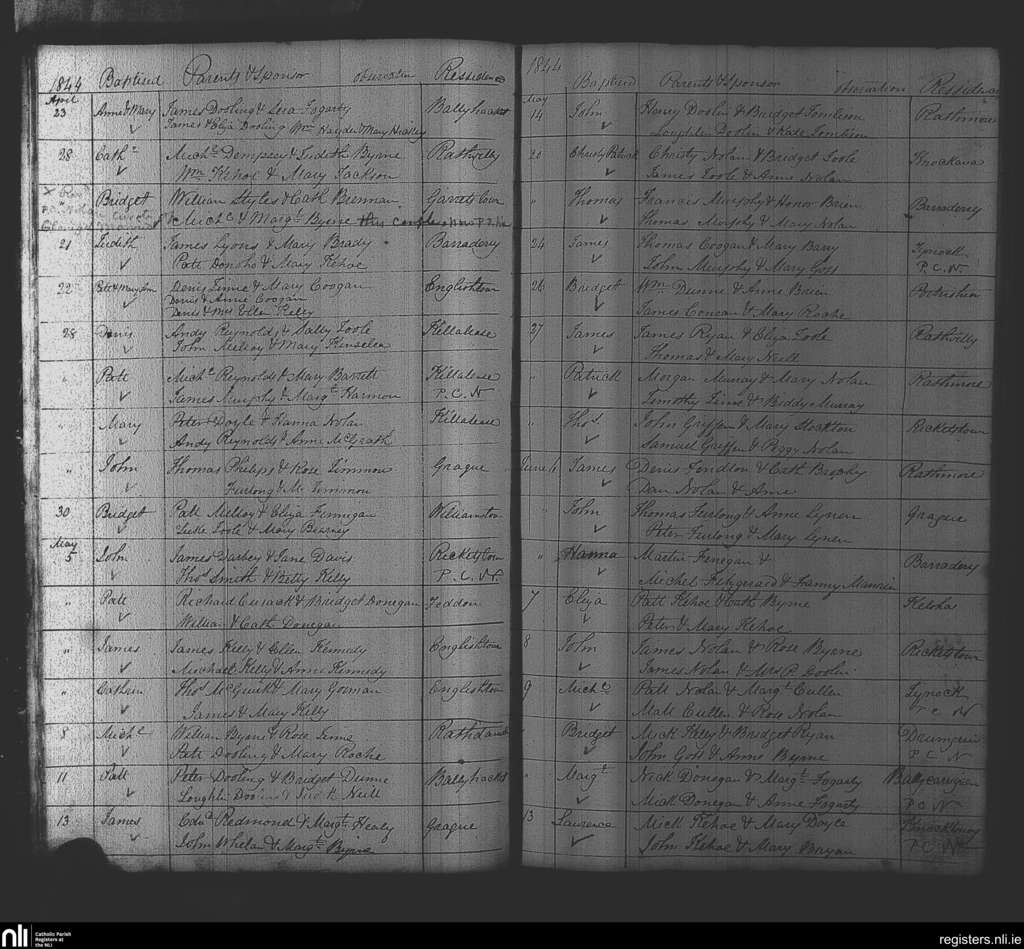 1844 Baptised Parents & Sponsor observation Ressidence
April
23 Anne & Mary James Dooling & Sera Fogarty Ballyhacket
James & Eliza Dooling Wm Hayden & Mary Healey
28 Cathe Michl Dempsey & Judith Byrne Rathvilly
Wm Kehoe & Mary Jackson
" Bridget William Styles & Cath Brennan Garretstown
Michl & Margt Byrne this couple
21 Judith James Lyons & Mary Brady Barraderry
Patt Donoho & Mary Kehoe
22 Denis Linne & Mary Coogan Englishtown
Denis & Anne Coogan
Denis & Mrs Ellen Kelly
28 Denis Andy Reynolds & Sally Toole Killalease
John Melloy & Mary Kinselea
" Patt Michl Reynolds & Mary Barrett Killalease
James Murphy & Margt Harmon P.C.N
" Mary Peter Doyle & Hanna Nolan Killalease
Andy Reynolds & Anne McGrath
" John Thomas Philips & Rose Timmon Grague
Furlong & M. Timmon
30 Bridget Patt Melloy & Eliza Finnigan Williamstown
Luke Toole & Mary Bearney
May
5 John James Darbey & Jane Davis Ricketstown
Thos Smith & Betty Kelly P.C.N.
" Patt Richard Cusack & Bridget Donegan
William & Cath Donegan
" James James Kelly & Ellen Kennedy Englishtown
Michael Kelly & Anne Kennedy
" Thos McGuirk & Mary Gorman Englishtown
James & Mary Kelly
8 Michl William Byrne & Rose Linne
Patt Dooling & Mary Roche
11 Patt Peter Dooling & Bridget Dunne Ballyhacket
Loughlin Dooling & Neill
13 James Edwd Redmond & Margt Healy Grague
John Whelan & Margt Byrne
1844 Baptised Parents & Sponsor observation Ressidence
May
14 John Henry Doolin & Bridget Tomlinson Rathmore
Loughlin Doolin & Kate Tomlinson
20 Christy Patrick Christy Nolan & Bridget Toole
James Toole & Anne Nolan
" Thomas Francis Murphy & Honor Brien Barraderry
Thomas Murphy & Mary Nolan
24 James Thomas Coogan & Mary Barry
John Murphy & Mary Goss P.C.N.
26 Bridget Wm Dunne & Anne Brien
James Concan & Mary Roche
27 James James Ryan & Eliza Toole Rathvilly
Thomas & Mary Neill
" Patrick Morgan Murray & Mary Nolan Rathmore
Timothy Linne & Biddy Murray
" Thos John Griffen & Mary Stockton Ricketstown
Samuel Griffen & Peggy Nolan
June James Denis Fendlon & Cath Brophy Rathmore
Dan Nolan & Anne
" John Thomas Furlong & Anne Lynen Grague
Peter Furlong & Mary Lynen
" Hanna Martin Finegan & Barraderry
Michel Fitzgerard & Fanny
7 Eliza Patt Kehoe & Cath Byrne
Peter & Mary Kehoe
8 John James Nolan & Rose Byrne Ricketstown
James Nolan & Mrs P. Doolin
9 Michl Patt Nolan & Margt Cullen
Matt Cullen & Rose Nolan P C N
" Bridget Mick Kelly & Bridget Ryan
John Goss & Anne Byrne P C N
" Margt Nick Donegan & Margt Fogarty
Mick Donegan & Anne Fogarty P.C.N
13 Laurence Mick Kehoe & Mary Doyle
John Kehoe & Mary P.C.N
nli Catholic Parish
Registers at
the NLI
registers.nli.ie